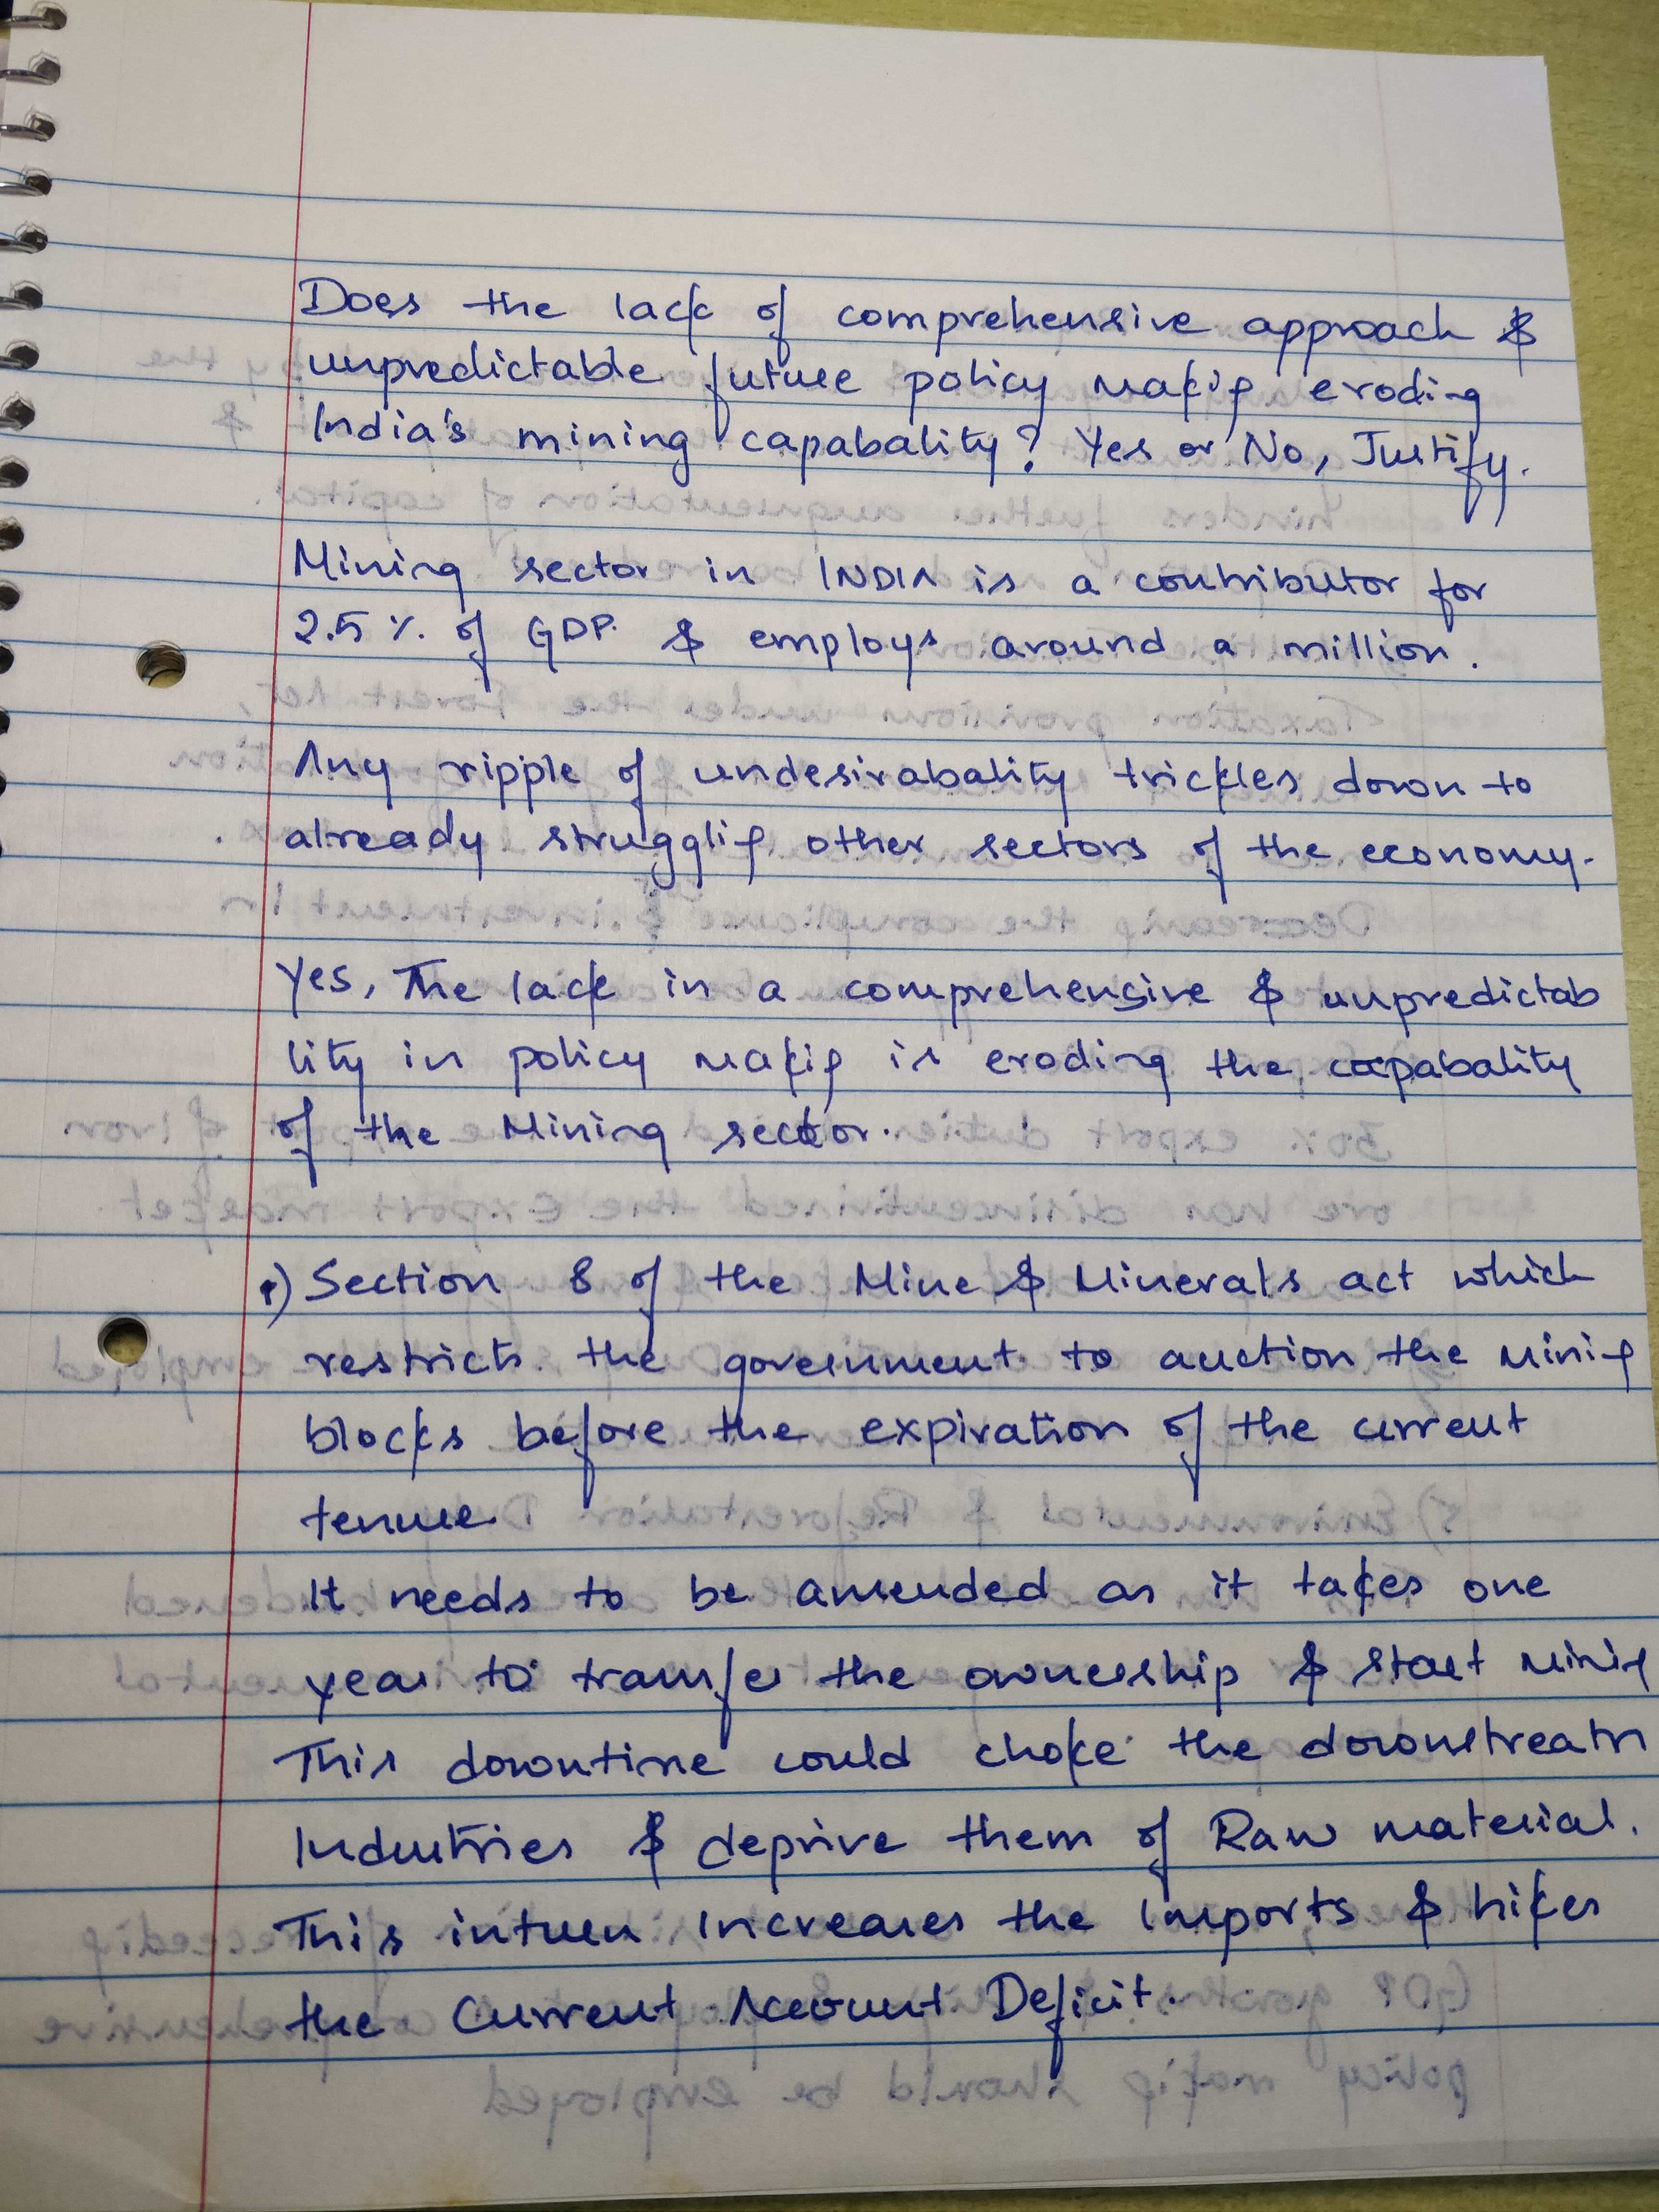 Does the lack of comprehensive approach &
unpredictable future policy making eroding
India's mining capabality? Yes or No, Justify.
Mining sector in INDIA is a contributor for
2.5 % of GDP & employs around a million.
Any ripple of undesirabality trickles down to
already struggling other sectors of the economy.
Yes, The lack in a comprehensive & unpredictab
lity in policy making is eroding the capabality
of the Mining sector.
1) Section 8 of the Mine & Minerals act which
restricts the government to auction the Mining
blocks before the expiration of the current
tenure
It needs to be amended as it takes one
year to transfer the ownership & start Mining
This downtime could choke the downstream
Industries & deprive them of Raw material.
This inturn Increases the Imports & hikes
the Current Account Deficit.